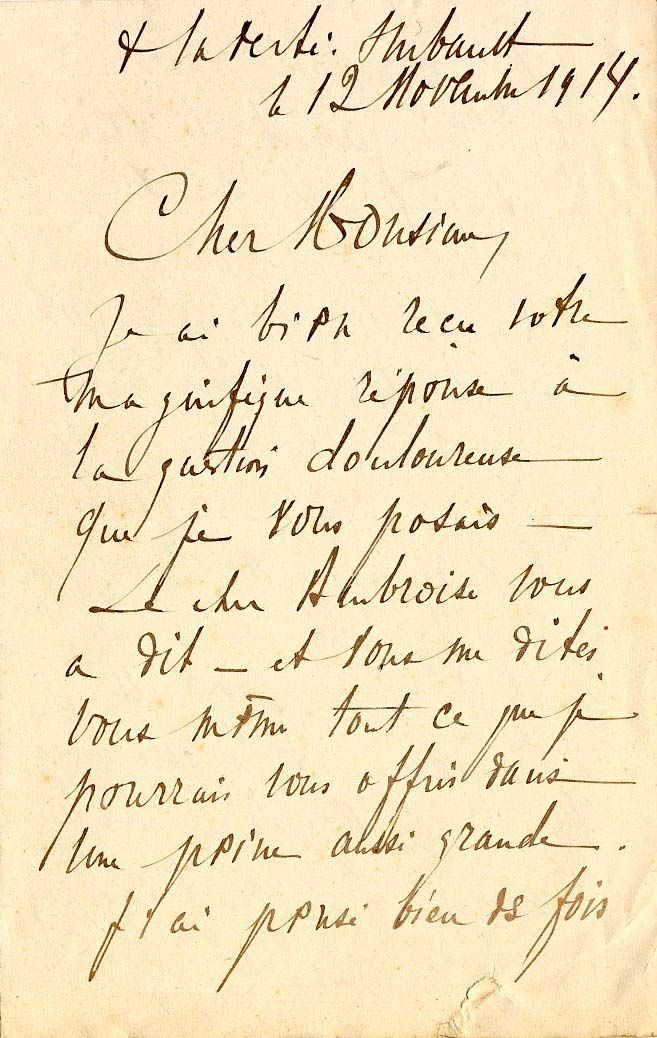 + la Ferté. Imbault
le 12 Novembre 1914.
Cher Monsieur,
Je ai bien reçu votre
magnifique réponse à
la question douloureuse
que je vous posais —
Le cher Ambroise vous
a dit — et vous me dites
vous même tout ce que je
pourrais vous offrir dans
une peine aussi grande.
J'ai pensé bien des fois